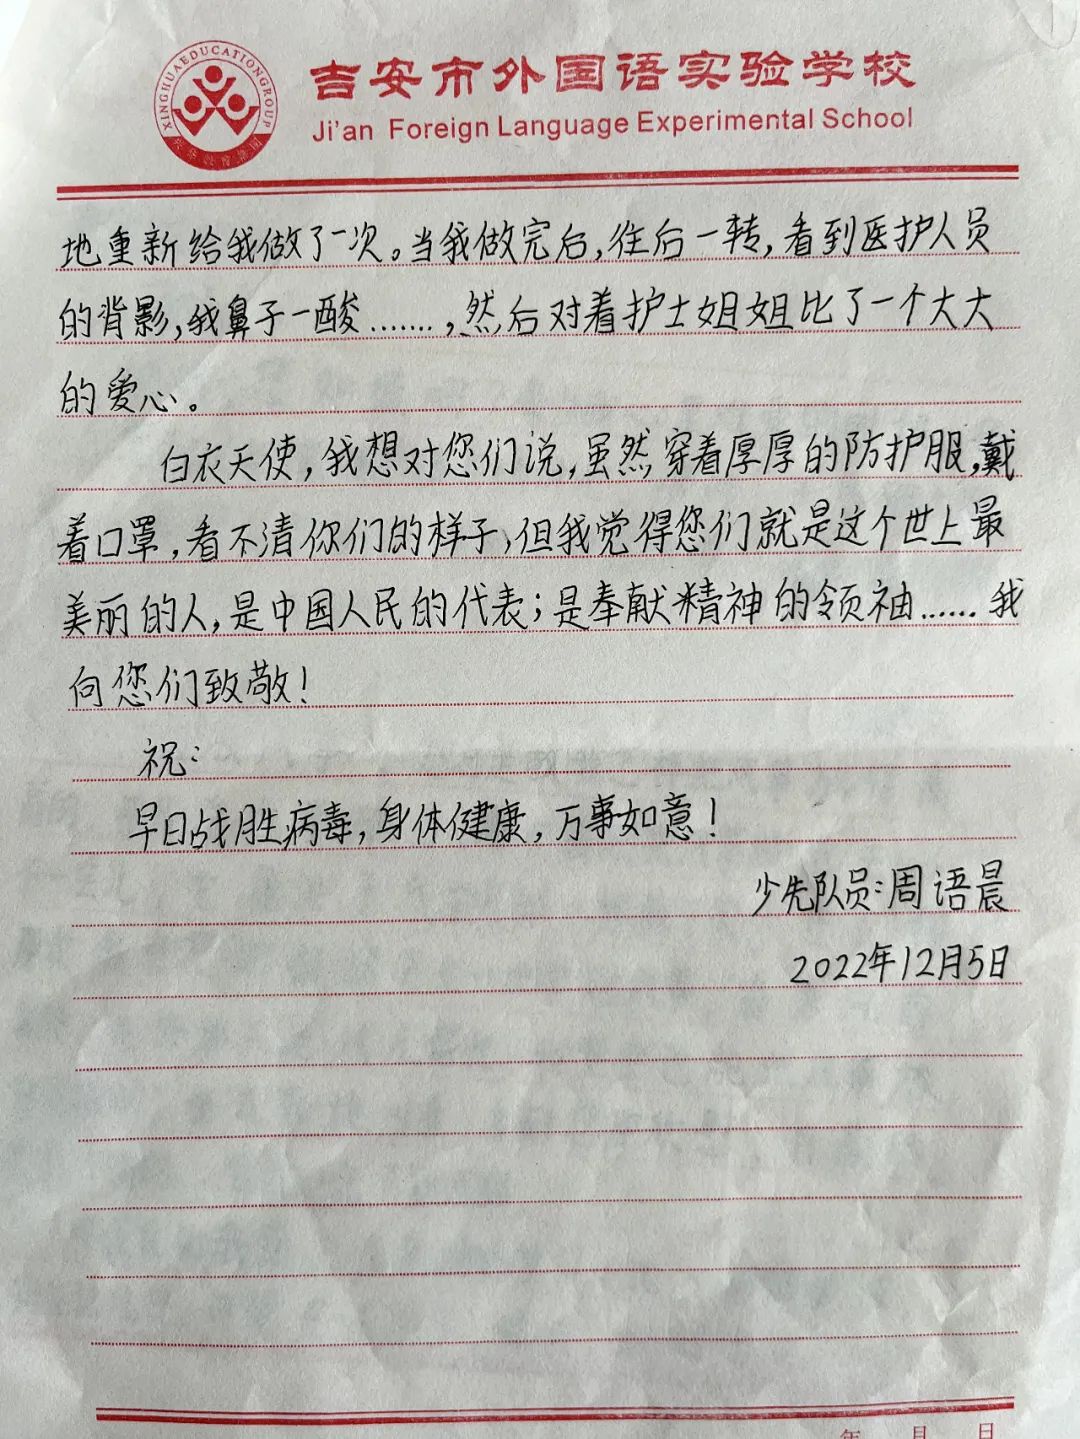 XINGHUAEDUCATIONGROUP
兴华教育集团
吉安市外国语实验学校
Ji'an Foreign Language Experimental School
地重新给我做了一次。当我做完后，往后一转，看到医护人员
的背影，我鼻子一酸.......，然后对着护士姐姐比了一个大大
的爱心。
白衣天使，我想对您们说，虽然穿着厚厚的防护服，戴
着口罩，看不清你们的样子，但我觉得您们就是这个世上最
美丽的人，是中国人民的代表；是奉献精神的领袖......我
向您们致敬！
祝：
早日战胜病毒，身体健康，万事如意！
少先队员：周语晨
2022年12月5日
年 月 日